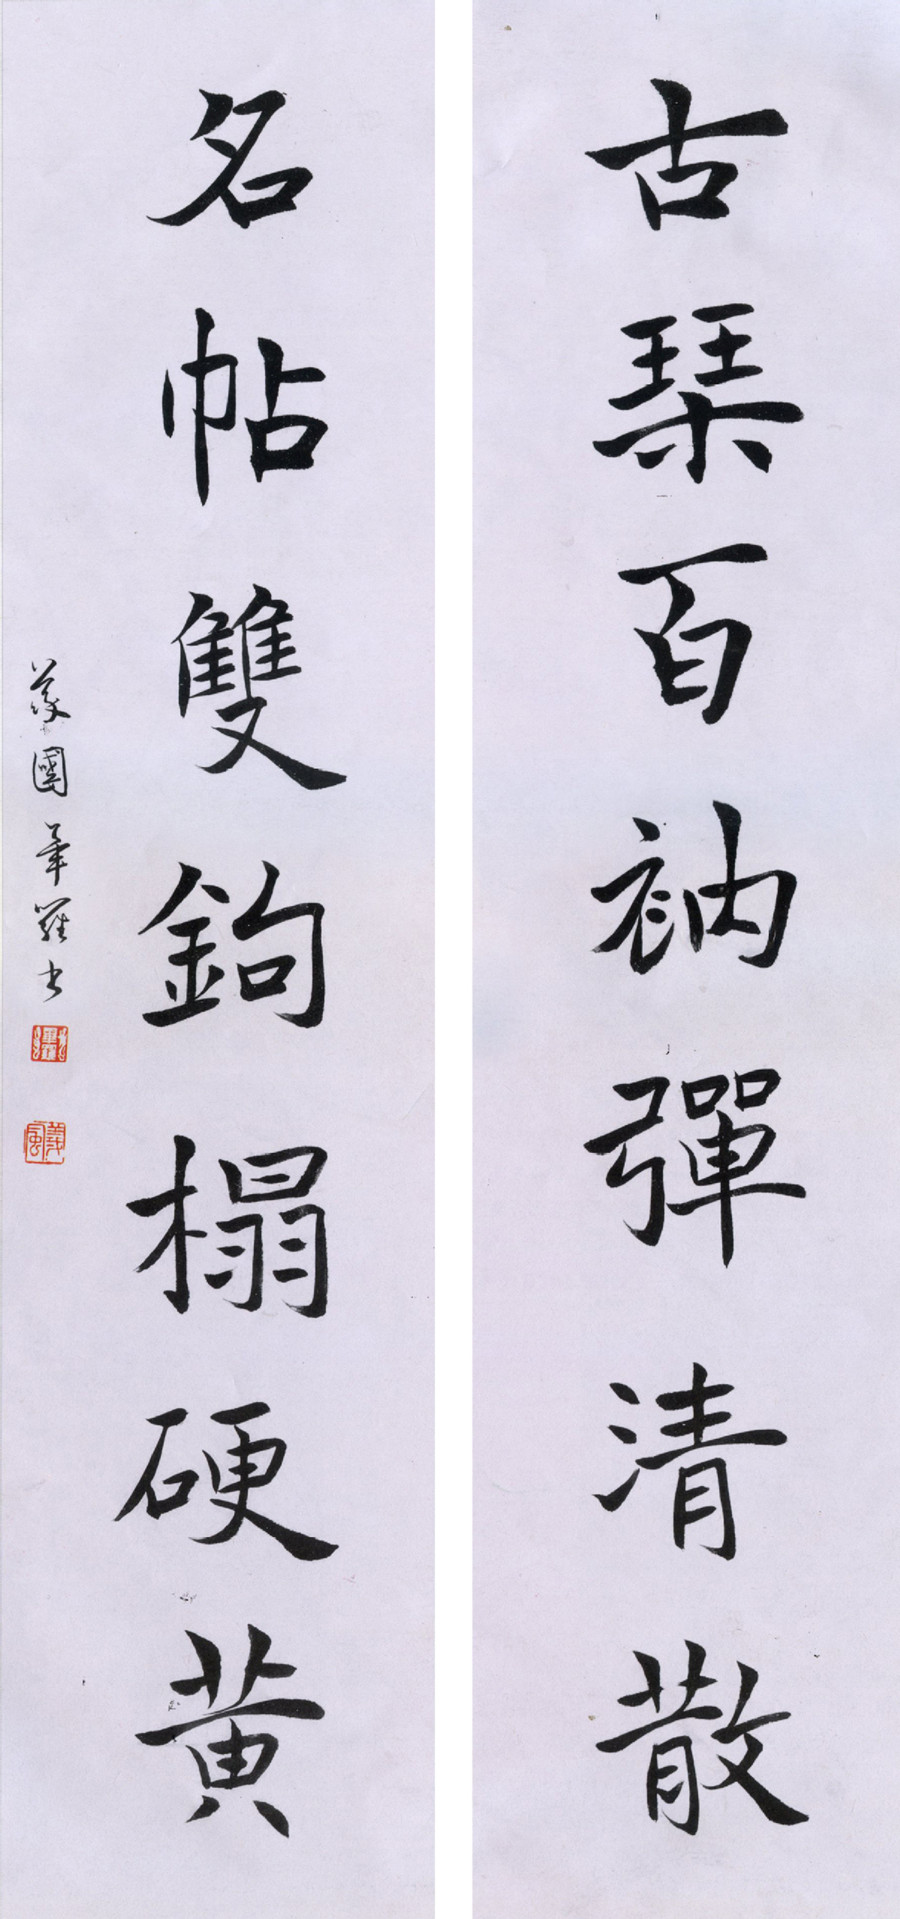 古琹百衲彈清散
名帖雙鉤榻硬黃